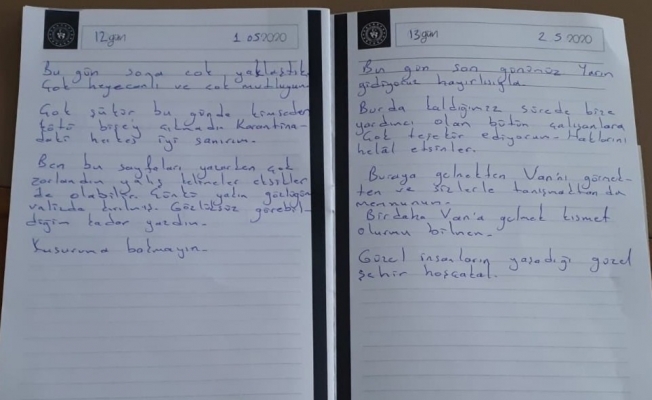 12gün 1.05.2020
Bu gün sona çok yaklaştık
Çok heyecanlı ve çok mutluyum
Çok şükür bu günde kimseden
kötü bişey çıkmadı Karantina-
daki herkes iyi sanırım.
Ben bu sayfaları yazarken çok
zorlandım kelimeler eksikler
de olabilir Çünkü yakın gözlüğüm
valizde kalmış. Gözlüksüz görebil-
diğim kadar yazdım.
Kusuruma bakmayın.
13gün 2 5 2020
Bu gün son günümüz Yarın
gidiyoruz hayırlısıyla
Burda kaldığımız sürede bize
yardımcı olan bütün çalışanlara
Çok teşekür ediyorum. Haklarını
helâl etsinler.
Buraya gelmekten Van'ı görmek-
ten ve sizlerle tanışmaktan da
memnunum.
Birdaha Van'a gelmek kısmet
olurmu bilmem.
Güzel insanların yaşadığı güzel
şehir hoşçakal.